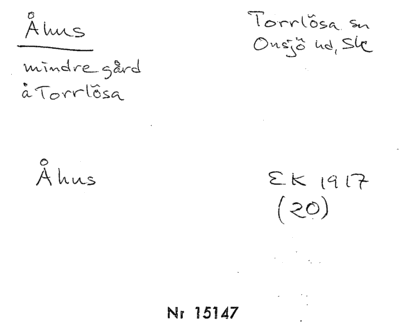 Åhus
Torrlösa sn
Onsjö hd, Sk
mindre gård
å Torrlösa
Åhus
EK 1917
(20)
Nr 15147